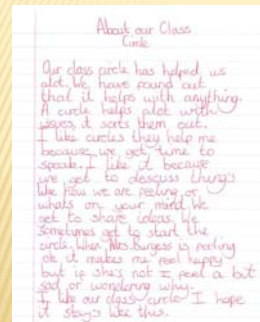 About our Class
Circle
Our class circle has helped us
alot. We have found out
that it helps with anything.
A circle helps alot with
issues, it sorts them out.
I like circles they help me
because we get time to
speak. I like it because
we get to desscuss thing's
like How we are feeling or
whats on your mind. We
get to share ideas. We
sometimes get to start the
circle. When Mrs. Burgess is feeling
ok it makes me feel happy
but if she's not I feel a bit
sad or wondering why.
I like our class circle I hope
it stay's like this.